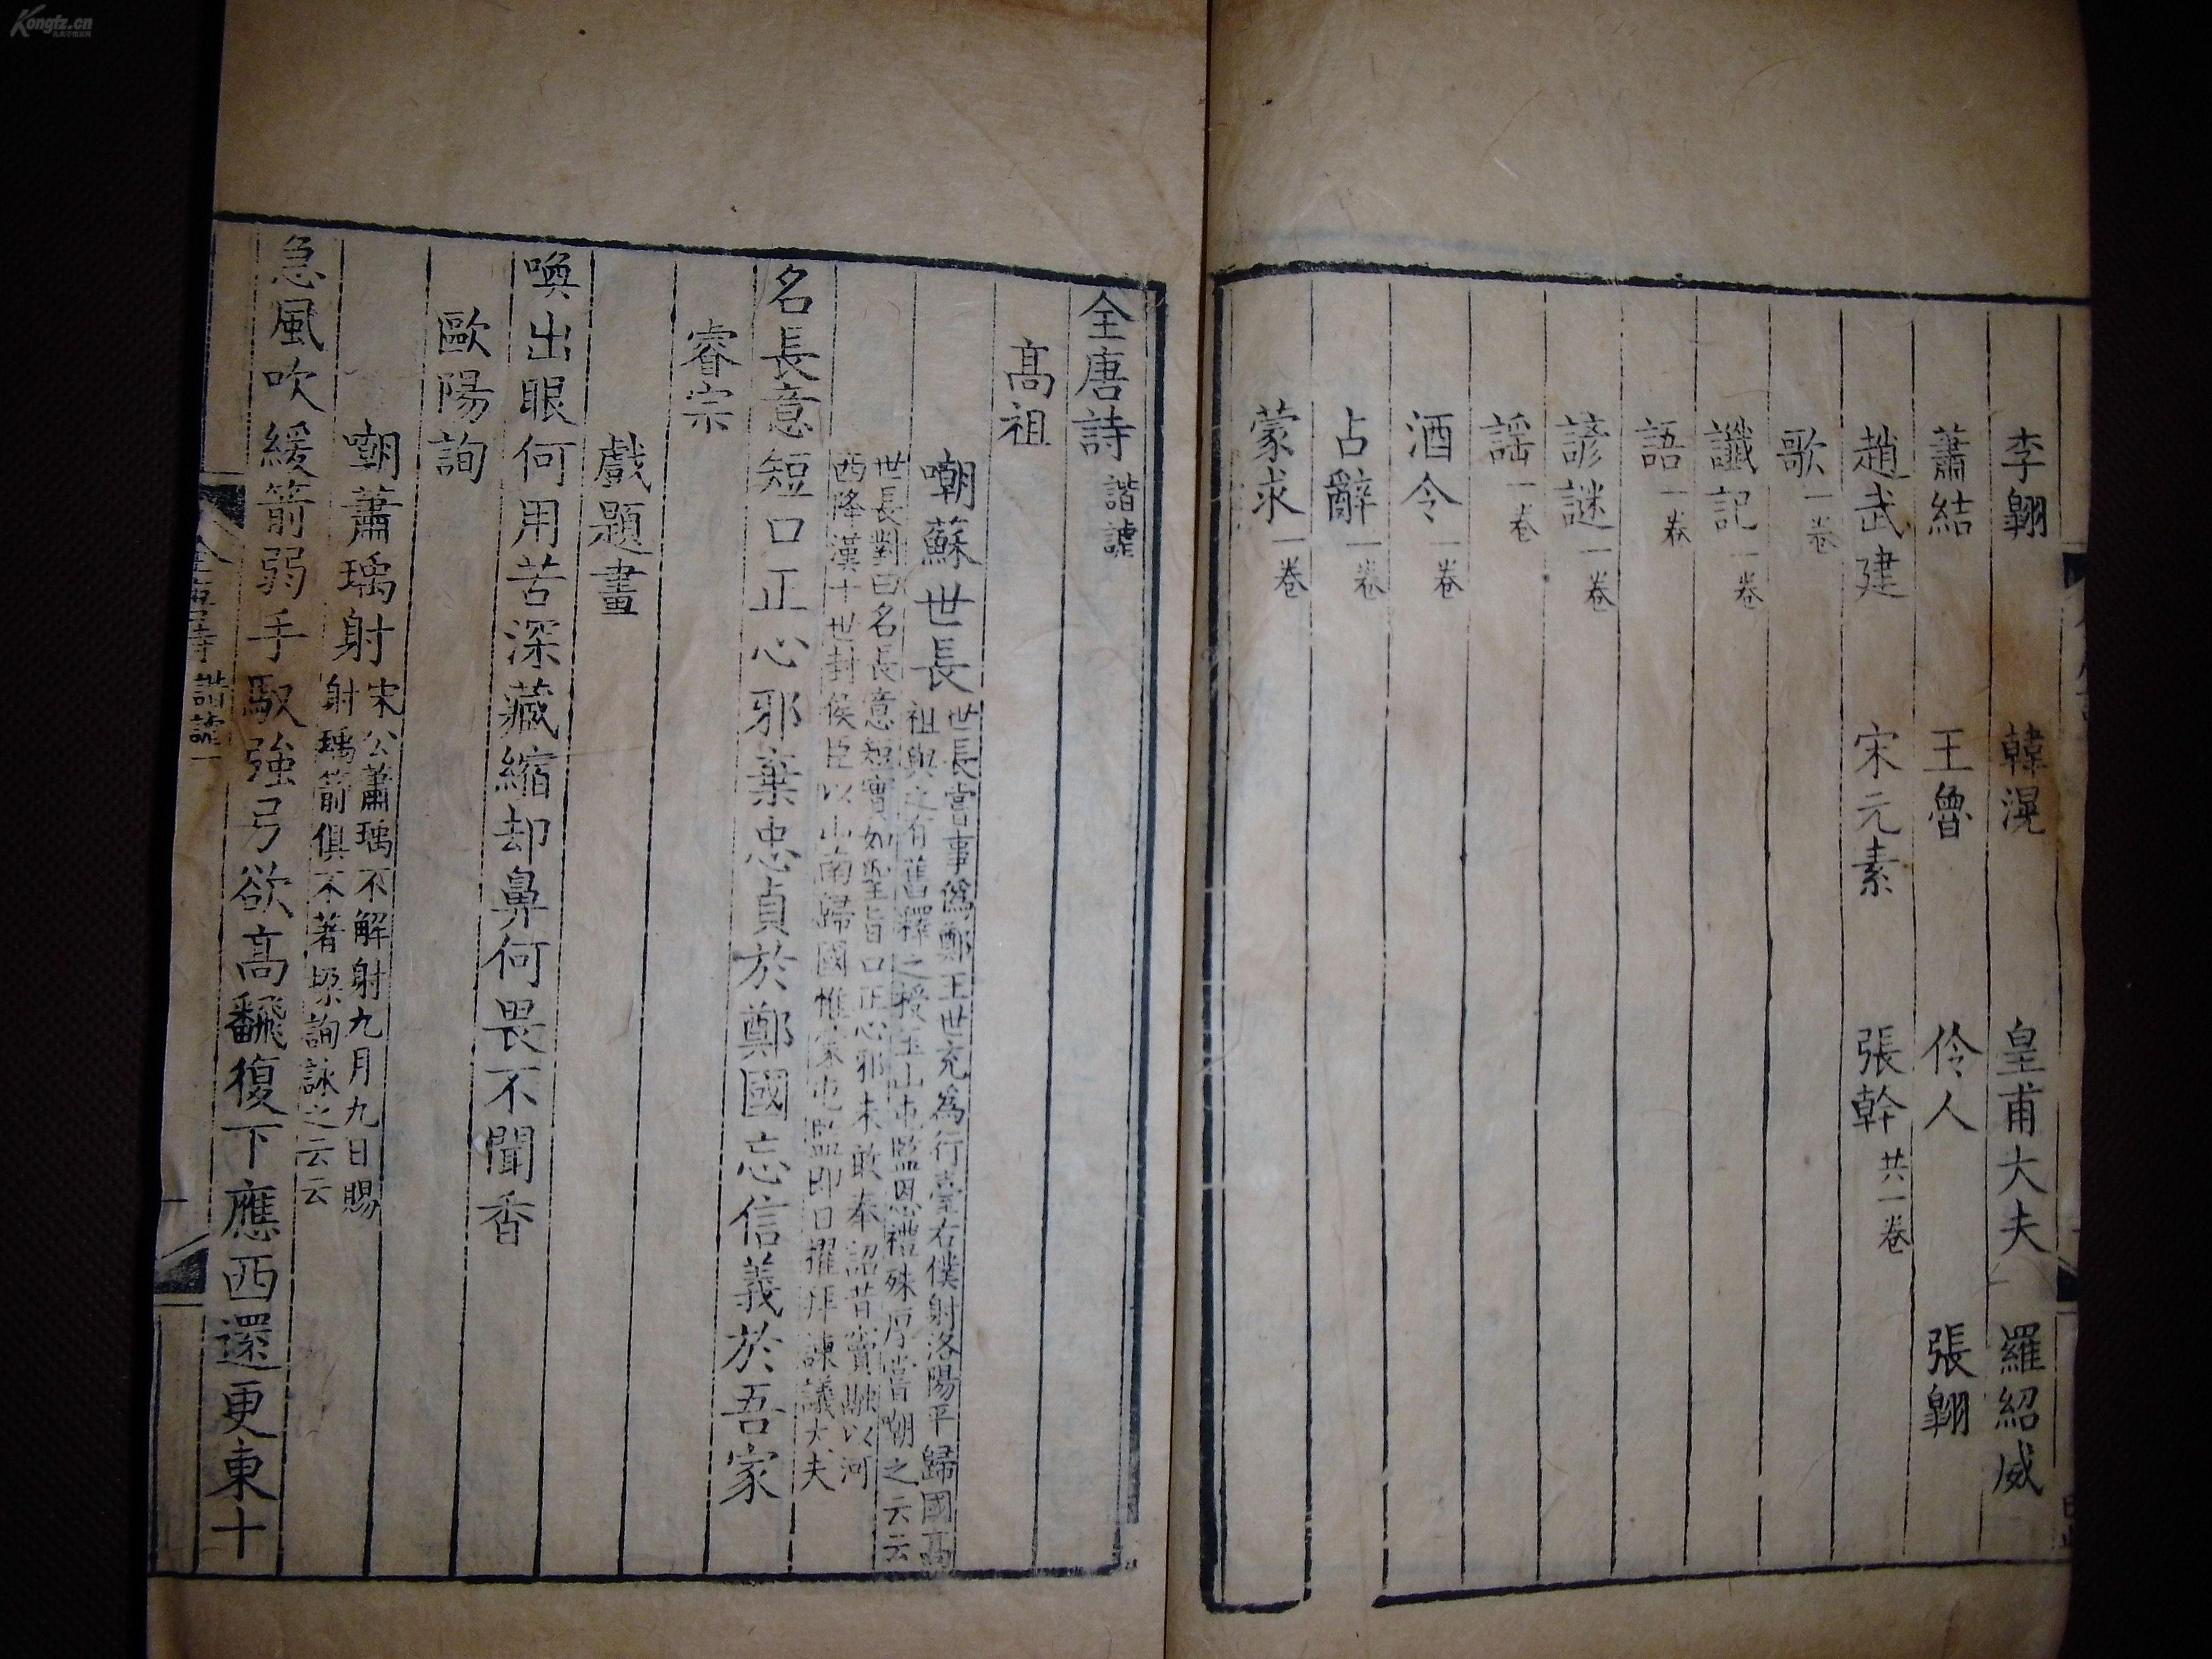 李翱 韓滉 皇甫大夫 羅紹威
蕭結 王魯 伶人 張翱
趙武建 宋元素 張幹 共一卷
歌 一卷
讖記 一卷
語 一卷
諺謎 一卷
謡 一卷
酒令 一卷
占辭 一卷
蒙求 一卷
全唐詩 諧謔
高祖
嘲蘇世長 世長嘗事僞鄭王世充為行臺右僕射洛陽平歸國高
祖與之有舊釋之授玉山屯監恩禮殊厚嘗嘲之云云
世長對曰名長意短實如聖旨口正心邪未敢奉詔昔竇融以河
西降漢十世封侯臣以山南歸國惟蒙屯監即日擢拜諫議大夫
名長意短口正心邪棄忠貞於鄭國忘信義於吾家
睿宗
戲題畫
喚出眼何用苦深藏縮却鼻何畏不聞香
歐陽詢
嘲蕭瑀射 宋公蕭瑀不解射九月九日賜
射瑀箭俱不著垛詢詠之云云
急風吹緩箭弱手馭強弓欲高翻復下應西還更東十
全唐詩 諧謔一
一
Kongfz.cn